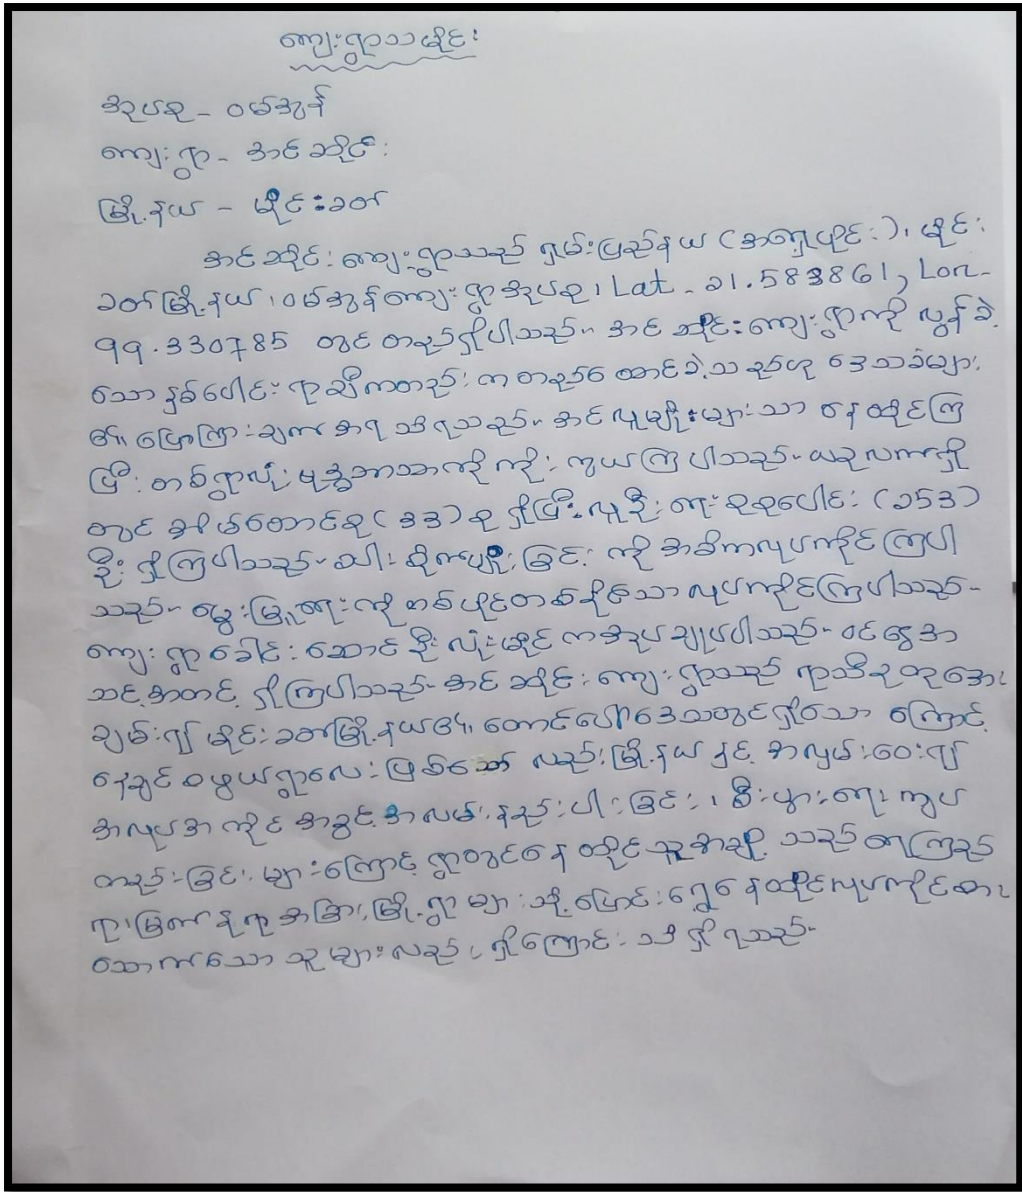 ကျေးရွာသမိုင်း
အုပ်စု - ဝမ်အွန်
ကျေးရွာ - အင်ဆိုင်း
မြို့နယ် - မိုင်းခတ်
အင်ဆိုင်းကျေးရွာသည် ရှမ်းပြည်နယ် (အရှေ့ပိုင်း)၊ မိုင်း
ခတ်မြို့နယ်၊ ဝမ်အွန်ကျေးရွာအုပ်စု၊ Lat - 21.583861, Lon-
99.330785 တွင် တည်ရှိပါသည်။ အင်ဆိုင်းကျေးရွာကို လွန်ခဲ့
သော နှစ်ပေါင်း ရာချီကတည်းက တည်ထောင်ခဲ့သည်ဟု ဒေသခံများ
၏ ပြောကြားချက်အရ သိရသည်။ အင်လူမျိုးများသာ နေထိုင်ကြ
ပြီး တစ်ရွာလုံး ဗုဒ္ဓဘာသာကို ကိုးကွယ်ကြပါသည်။ ယခုလက်ရှိ
တွင် အိမ်ထောင်စု (၃၃) စု ရှိပြီး လူဦးရေ စုစုပေါင်း (၁၅၃)
ဦး ရှိကြပါသည်။ သီးစိုက်ပျိုးခြင်းကို အဓိကလုပ်ကိုင်ကြပါ
သည်။ မွေးမြူရေးကို တစ်ပိုင်တစ်နိုင်သော လုပ်ကိုင်ကြပါသည်။
ကျေးရွာခေါင်းဆောင် ဦးလုံးမိုင် ကအုပ်ချုပ်ပါသည်။ ဝင်ငွေအ
သင့်အတင့် ရှိကြပါသည်။ အင်ဆိုင်းကျေးရွာသည် ရာသီဥတုအေး
ချမ်း၍ မိုင်းခတ်မြို့နယ်၏ တောင်ပေါ်ဒေသတွင်ရှိသော ကြောင့်
နေချင်စဖွယ်ရွာလေးဖြစ်သော်လည်း မြို့နယ်နှင့် အလှမ်းဝေး၍
အလုပ်အကိုင် အခွင့်အလမ်းနည်းပါးခြင်း၊ စီးပွားရေး ကျပ်
တည်းခြင်းများကြောင့် ရွာတွင်နေထိုင်သူအချို့သည် တကြည်
ရပ်မြက်နံရာ အခြားမြို့ရွာများသို့ ပြောင်းရွှေ့နေထိုင်လုပ်ကိုင်စား
သောက်သော သူများလည်း ရှိကြောင်း သိရှိရသည်။